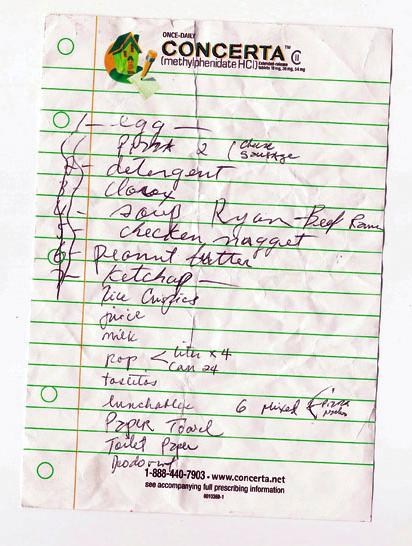 ONCE-DAILY
CONCERTA™ CII
(methylphenidate HCl) Extended-release tablets 18 mg, 36 mg, 54 mg
1- egg —
Pizza 2 ( Cheese
Sausage
2- detergent
3- clorox
4- soup Ryan-Beef Ramn
5- chicken nugget
6- peanut butter
7- Ketchup —
Rice Crispies
juice
milk
pop < Liter x 4
can 24
tostitos
lunchables 6 mixed < Pizza
Nachos
Paper Towel
Toilet Paper
1-888-440-7903 • www.concerta.net
see accompanying full prescribing information